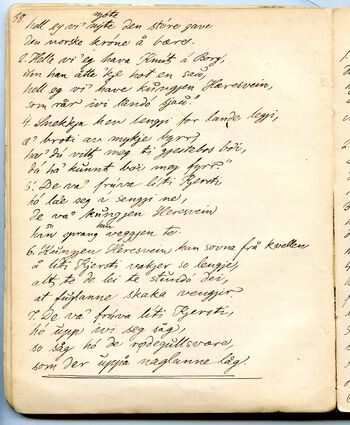 58.
nöte
hell eg vi' nyte den störe gave
den norske króne å bære.
2. Helle vi' eg hava Knut i Borg,
um han åtte 'kje hot en sau,
hell eg vi' have kungjen Hæresvein,
som rår ivi landó sjau.
4. Snekkja hen lengji for lande leggi,
æ' broti av mykje byrr,
du vilt meg ti gjestebos boe,
då há' kunnt boe meg fyrr."
5. De va' frúva liti Kjersti
hó læe seg i sengji ne,
de va' kungjen Heresvein
han sprang han veggjen te.
6. Kungjen Heresvein, han sovna frå kvellen
å liti Kjersti vakjer so lengje,
alt te de lei te stundó dei,
at fuglanne skaka vengjir.
7. De va' frúva liti Kjersti,
hó upp ivi seg såg,
so såg hó de rödegullsvære,
som der uppå naglanne låg.